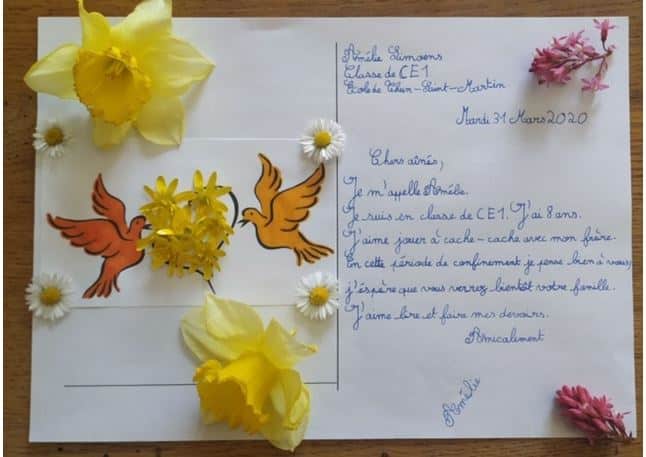 Amélie Limoens
Classe de CE1
Ecole de Thun-Saint-Martin
Mardi 31 Mars 2020
Chers aînés,
Je m'appelle Amélie.
Je suis en classe de CE1. J'ai 8 ans.
J'aime jouer à cache-cache avec mon frère.
En cette période de confinement je pense bien à vous,
j'éspère que vous verrez bientôt votre famille.
J'aime lire et faire mes devoirs.
Amicalement
Amélie